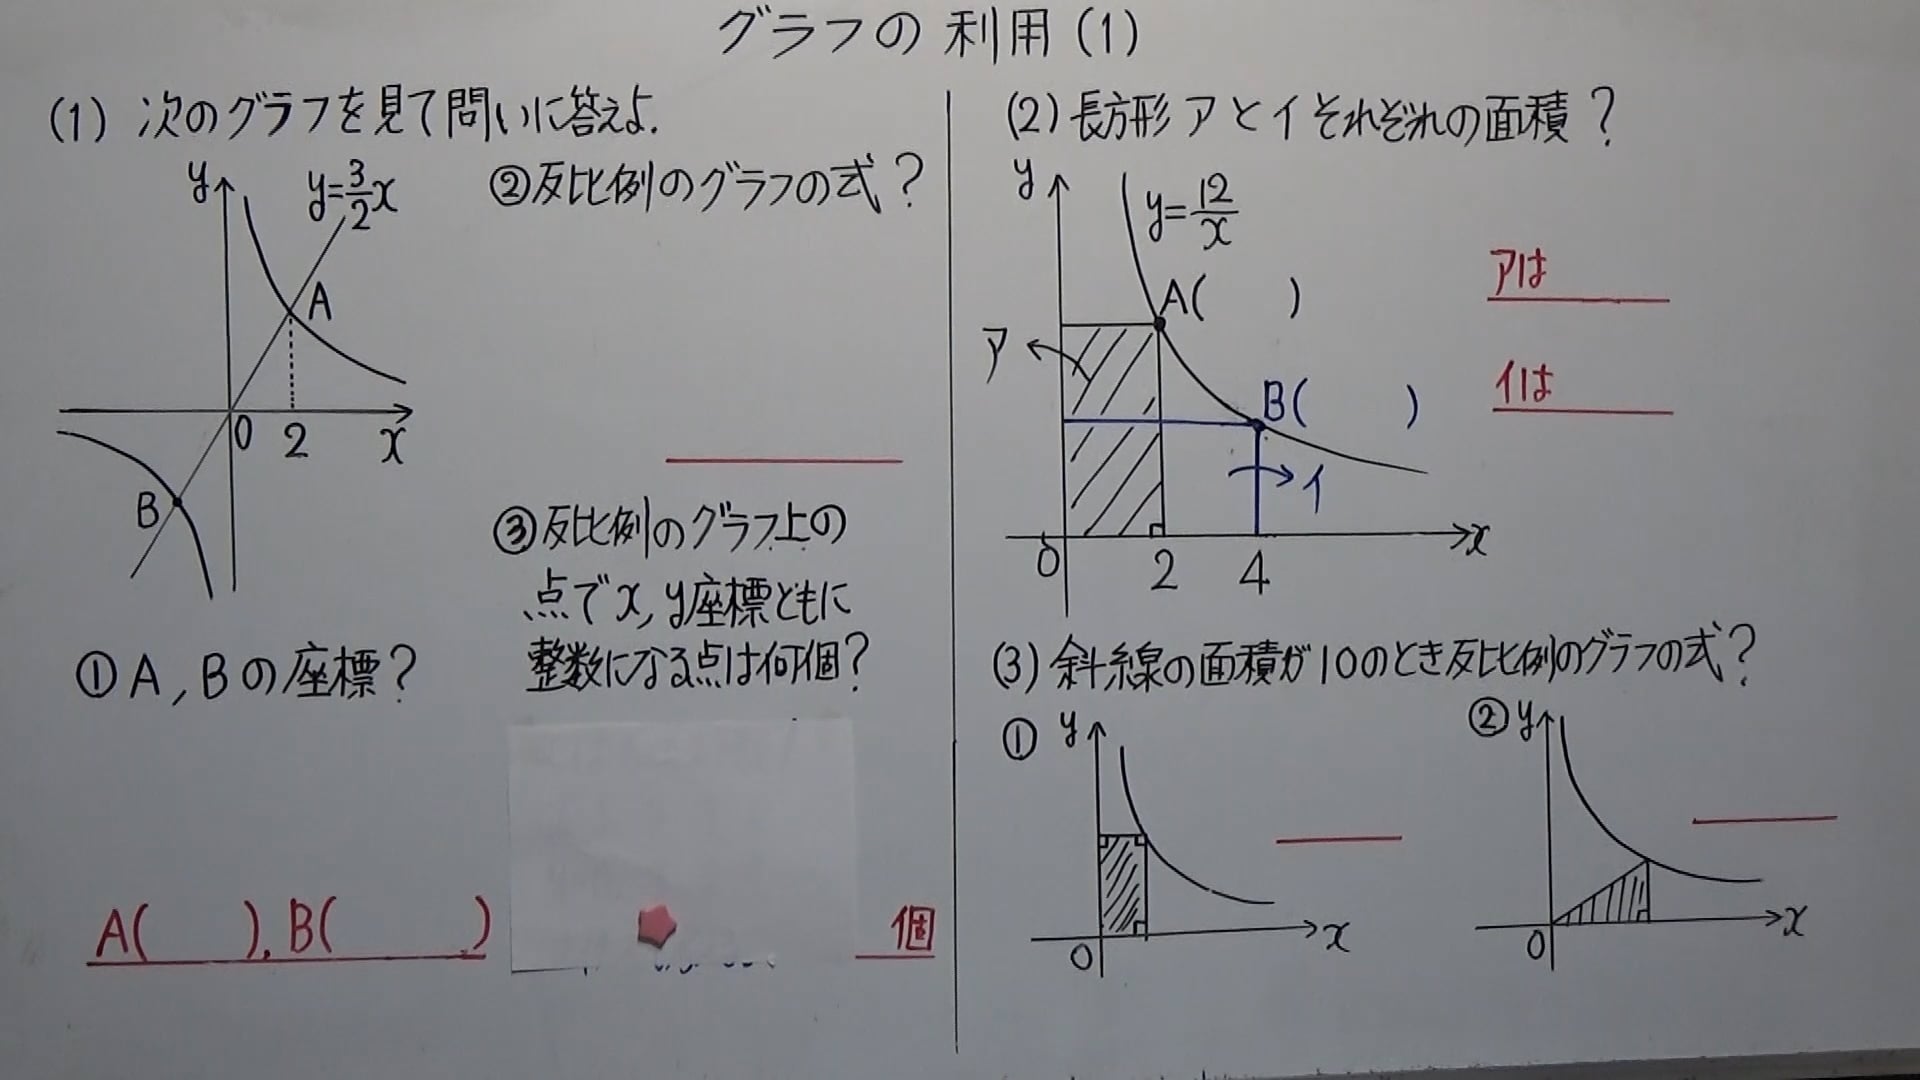 グラフの利用(1)
(1) 次のグラフを見て問いに答えよ.
y
y=3/2x
A
O
2
x
B
①A,Bの座標?
A(   ), B(   )
②反比例のグラフの式?
③反比例のグラフ上の
点でx,y座標ともに
整数になる点は何個?
個
(2)長方形アとイそれぞれの面積?
y
y=12/x
A(   )
ア
B(   )
イ
O
2
4
x
アは
イは
(3)斜線の面積が10のとき反比例のグラフの式?
①
y
O
x
②
y
O
x